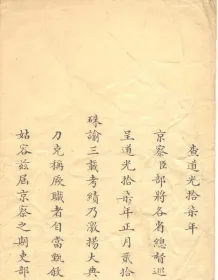 查道光拾柒年
京察臣部將各省總督巡
呈道光拾柒年正月貳拾
硃諭三載考績乃激揚大典
力克稱厥職者自當甄敘
姑容茲屆京察之期吏部